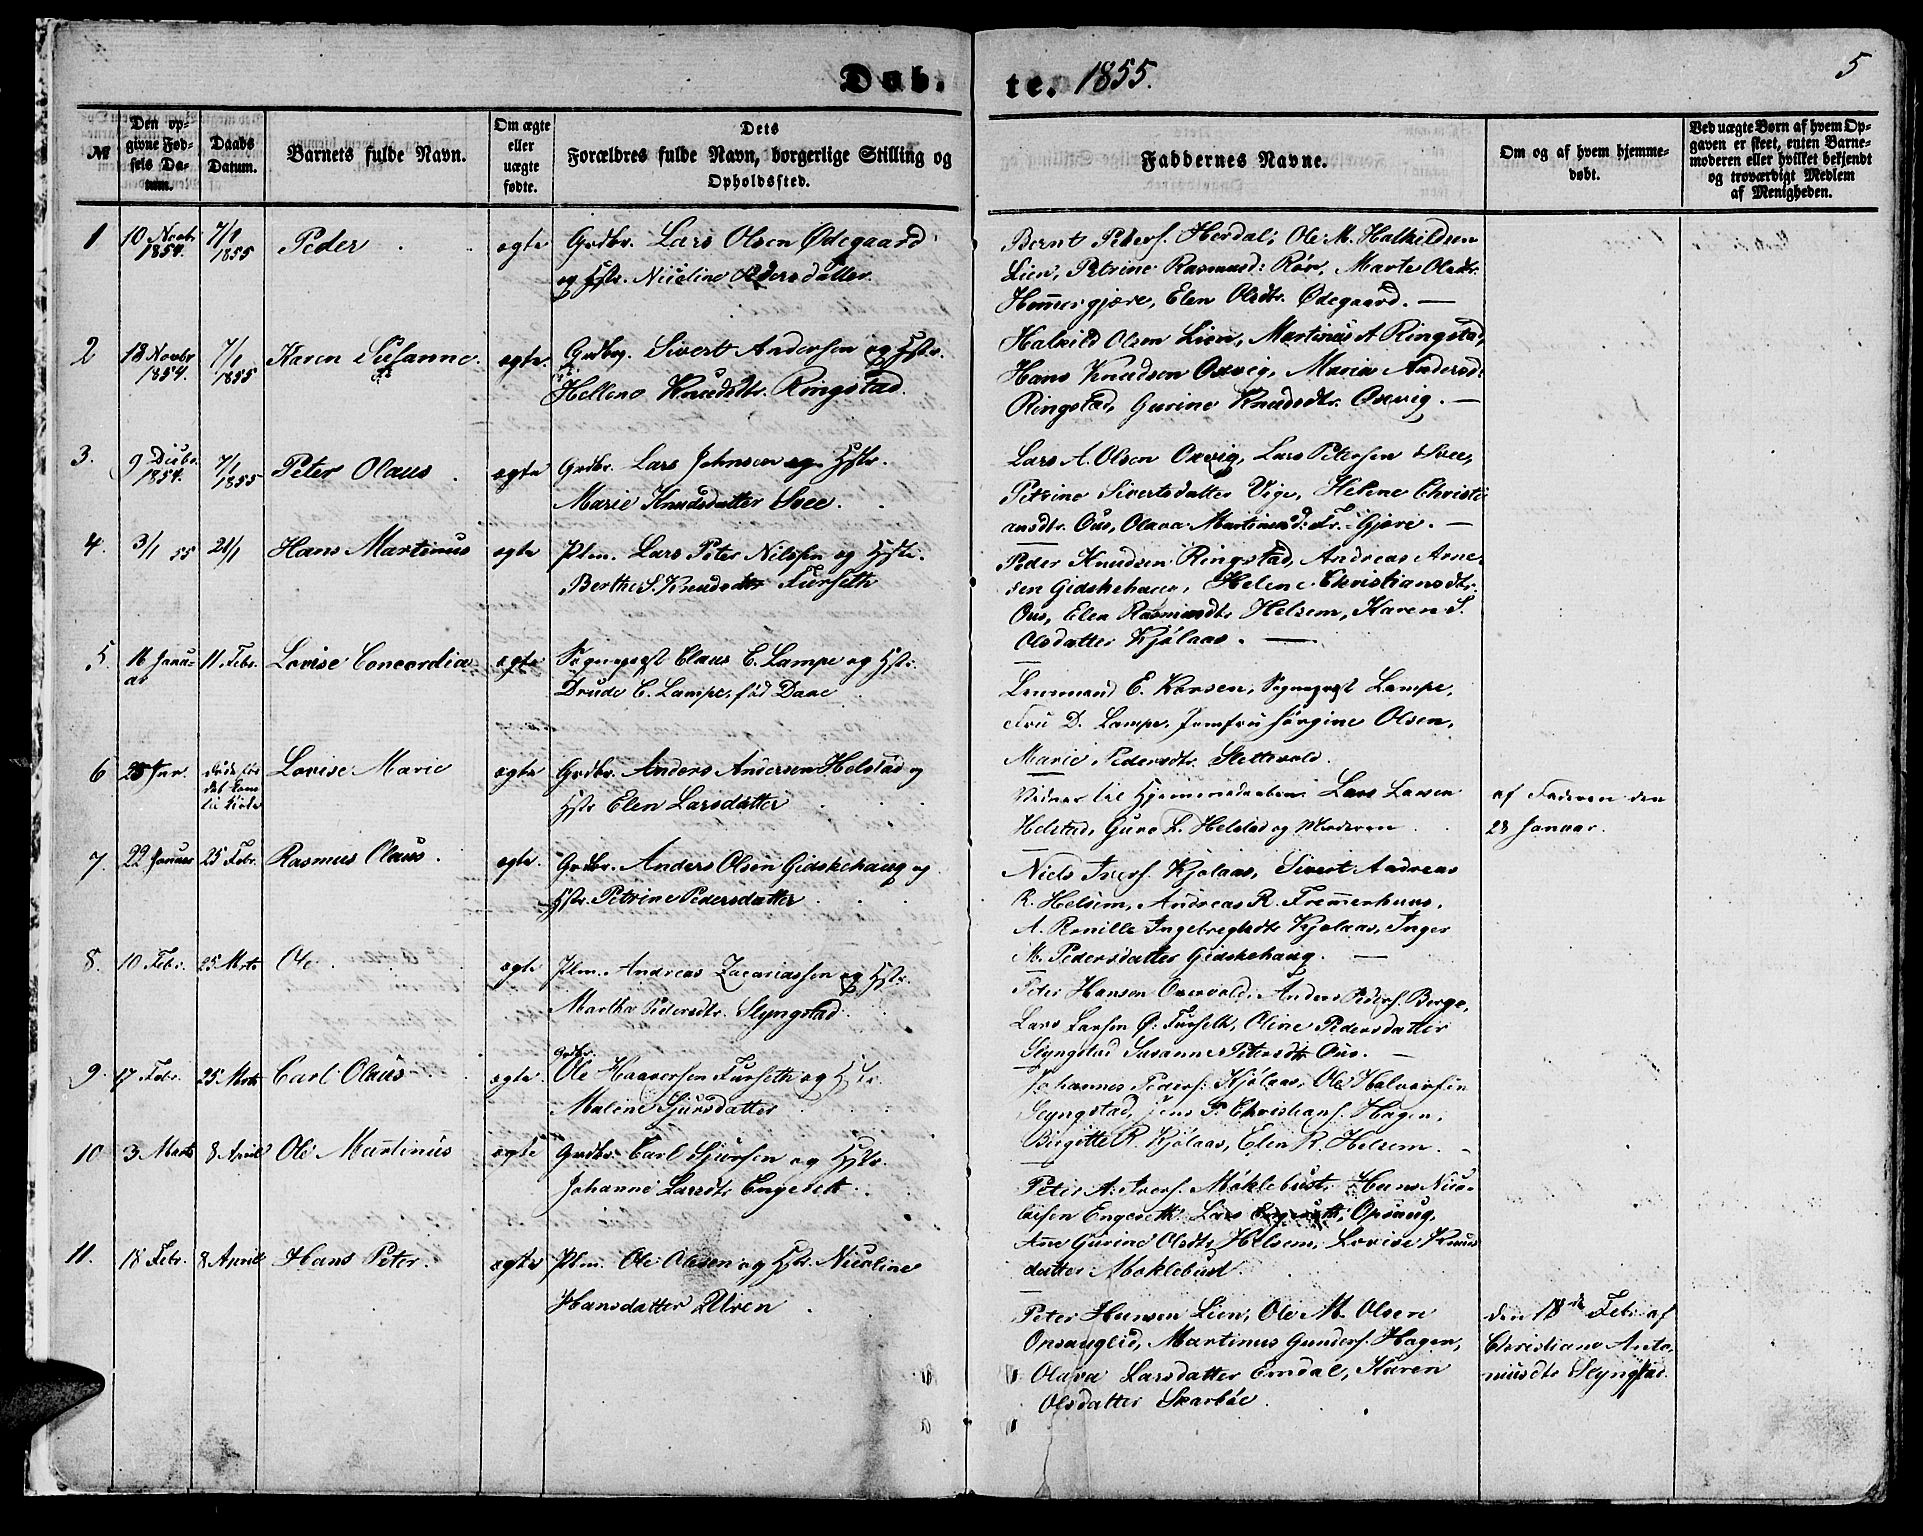 Døb. te. 1855. 5
№
Den op-
givne Fød-
sels Da-
tum.
Daabs
Datum.
Barnets fulde Navn.
Om ægte
eller
uægte
fødte.
Dets
Forældres fulde Navn, borgerlige Stilling og
Opholdssted.
Faddernes Navne.
Om og af hvem hjemme-
døbt.
Ved uægte Børn af hvem Op-
gaven er skeet, enten Barne-
moderen eller hvilket bekjendt
og troværdigt Medlem
af Menigheden.
1 10 Novbr 1854. 7/1 1855 Peder ægte Grdbr. Lars Olsen Ødegaard
og Hstr. Nicoline Pedersdatter.
Bernt Peders. Herdal, Ole M. Halkildsen
Lien, Petrine Rasmusd: Rør, Marte Olsdtr.
Hommergjære, Elen Olsdtr. Ødegaard. —
2 13 Novbr 1854. 7/1 1855 Karen Susanne ægte. Grdbr. Sivert Andersen og Hstr.
Hellene Knudsdtr. Ringstad.
Halkild Olsen Lien, Martinus A Ringstad,
Hans Knudsen Oxvig, Maria Andersd:
Ringstad, Gurine Knudsdtr. Oxevig. —
3. 9 Decbr. 1854. 7/1 1855 Peter Olaus ægte Grdbr. Lars Johnsen og Hstr.
Marie Knudsdatter Svee.
Lars A. Olsen Oxvig, Lars Petersen Svee,
Petrine Sivertsdatter Vige, Helene Christi
ansdtr. Ous, Olava Martinusd: Fr. Gjære. —
4. 3/1 55 21/1 Hans Martinus ægte Plm. Lars Peter Nilssen og Hstr.
Berthe S. Knudsdtr Furseth
Peder Knudsen Ringstad, Andreas Arne-
sen Gidskehaug, Helene Christiansdtr.
Ous, Elen Rasmusdtr Helsem, Karen S.
Olsdatter Kjølaas. —
5 16 Janu-
ar 11 Febr. Lovise Concordia ægte Sognepræst Claus C. Lampe og Hstr.
Drude C. Lampe, fød Daae
E. Hansen, Sognepræst Lampe,
Fru D. Lampe, Jomfru Jørgine Olsen,
Marie Pedersdtr. Slettevold.
6 Jan. døde før
det kom
til Kirke Lovise Marie ægte Grdbr. Anders Andersen Helstad og
Hstr Elen Larsdatter
Vidner til Hjemmedaaben Lars Larsen
Helstad, Guro L. Helstad og Moderen
af Faderen den
28 Januar.
7. 22 Januar 25 Febr. Rasmus Olaus. ægte. Grdbr. Anders Olsen Gidskehaug og
Hstr. Petrine Pedersdatter
Niels Ivers. Kjølaas, Sivert Andreas
R. Helsem, Andreas R. Fremmerhuus,
A. Ronille Ingebregtsdtr Kjølaas, Inger
M. Pedersdatter Gidskehaug. —
8. 10 Febr. 25 Mrts Ole ægte Plm. Andreas Zacariassen og Hstr.
Martha Pedersdtr. Slyngstad
Peter Hansen Oxevold, Anders Peders. Berge,
Lars Larsen Ø: Furseth, Oline Pedersdatter
Slyngstad Susanne Petersdtr Ous. —
9. 17 Febr. 25 Mrts Carl Olaus ægte. Grdbr.
Ole Haaversen Furseth og Hstr.
Maline Sjursdatter
Johannes Peders. Kjølaas, Ole Halvorsen
Slyngstad, Jens P. Christians. Hagen,
Birgitte R. Kjølaas, Elen R. Helsem.
10 3 Marts 8 April Ole Martinus ægte Grdbr. Carl Sjursen og Hstr.
Johanne Larsdtr Engeseth
Peter A. Ivers. Møklebust, Hans Nico-
laisen Engeseth Lars Opsaug,
Ane Gurine Olsdtr Helsem, Lovise Knuds
datter Møklebust.
11. 18 Febr. 8 April Hans Peter. ægte Plm. Ole Olesen og Hstr. Nicoline
Hansdatter Uren
Peter Hansen Lien, Ole M. Olsen
Opsauglid, Martinus Gunders. Hagen,
Olava Larsdatter Emdal, Karen
Olsdatter Skarbøe.
den 18de Febr. af
Christiane Anto-
niusdtr Slyngstad.